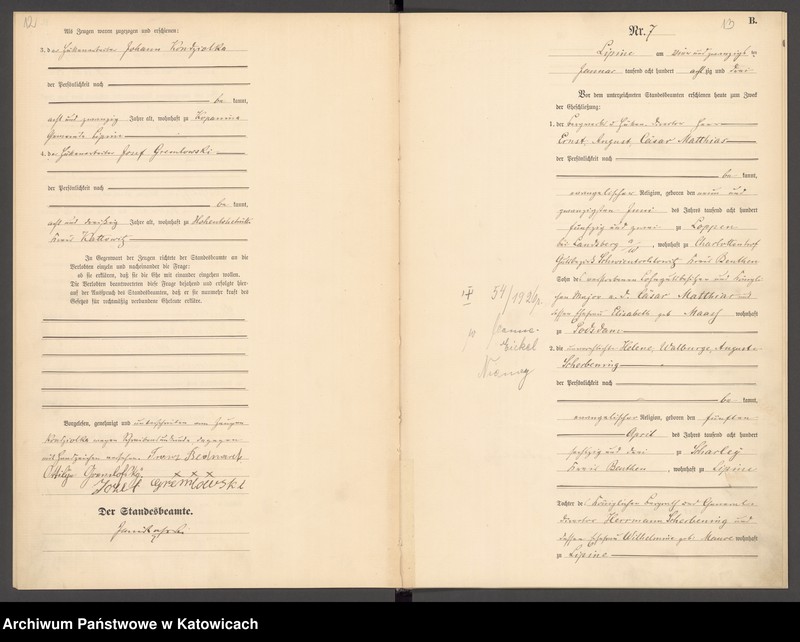 12
Als Zeugen waren zugezogen und erschienen:
3. der Hüttenarbeiter Johann
der Persönlichkeit nach
be kannt,
acht und zwanzig Jahre alt, wohnhaft zu
Gemeinde Lipine
4. der Hüttenarbeiter Josef Gremlowski
der Persönlichkeit nach
be kannt,
acht und dreißig Jahre alt, wohnhaft zu Hohenlohehütte
Kreis Kattowitz
In Gegenwart der Zeugen richtete der Standesbeamte an die
Verlobten einzeln und nacheinander die Frage:
ob sie erklären, daß sie die Ehe mit einander eingehen wollen.
Die Verlobten beantworteten diese Frage bejahend und erfolgte hier-
auf der Ausspruch des Standesbeamten, daß er sie nunmehr kraft des
Gesetzes für rechtmäßig verbundene Eheleute erkläre.
Vorgelesen, genehmigt und unterschrieben vom Zeugen
wegen Schreibensunkunde dagegen
mit Handzeichen versehen. Franz
Ottilije × × ×
Jozef Gremlowski
Der Standesbeamte.
13
B.
Nr. 7
Lipine am vier und zwanzigsten
Januar tausend acht hundert acht zig und drei
Vor dem unterzeichneten Standesbeamten erschienen heute zum Zweck
der Eheschließung:
1. der Bergwerks u. Hütten Direktor Herr
Ernst, August, Cäsar Matthias
der Persönlichkeit nach
be kannt,
evangelischer Religion, geboren den neun und
zwanzigsten Juni des Jahres tausend acht hundert
fünfzig und zwei zu Loppen
bei Landsberg a/W, wohnhaft zu Charlottenhof
Gutsbezirk Schwientochlowitz Kreis Beuthen
Sohn des verstorbenen Rittergutsbesitzer und Königli-
chen Major a. D. Cäsar Matthias und
dessen Ehefrau Elisabeth geb Maaß wohnhaft
zu Potsdam
2. die unverehelichte Helene, Walburge, Auguste
Scherbening
der Persönlichkeit nach
be kannt,
evangelischer Religion, geboren den fünften
April des Jahres tausend acht hundert
sechzig und drei zu Scharley
Kreis Beuthen, wohnhaft zu Lipine
Tochter des Königlichen Bergrath und General-
direktor Herrmann Scherbening und
dessen Ehefrau Wilhelmine geb. Mauve wohnhaft
zu Lipine
54/1926
Archiwum Państwowe w Katowicach